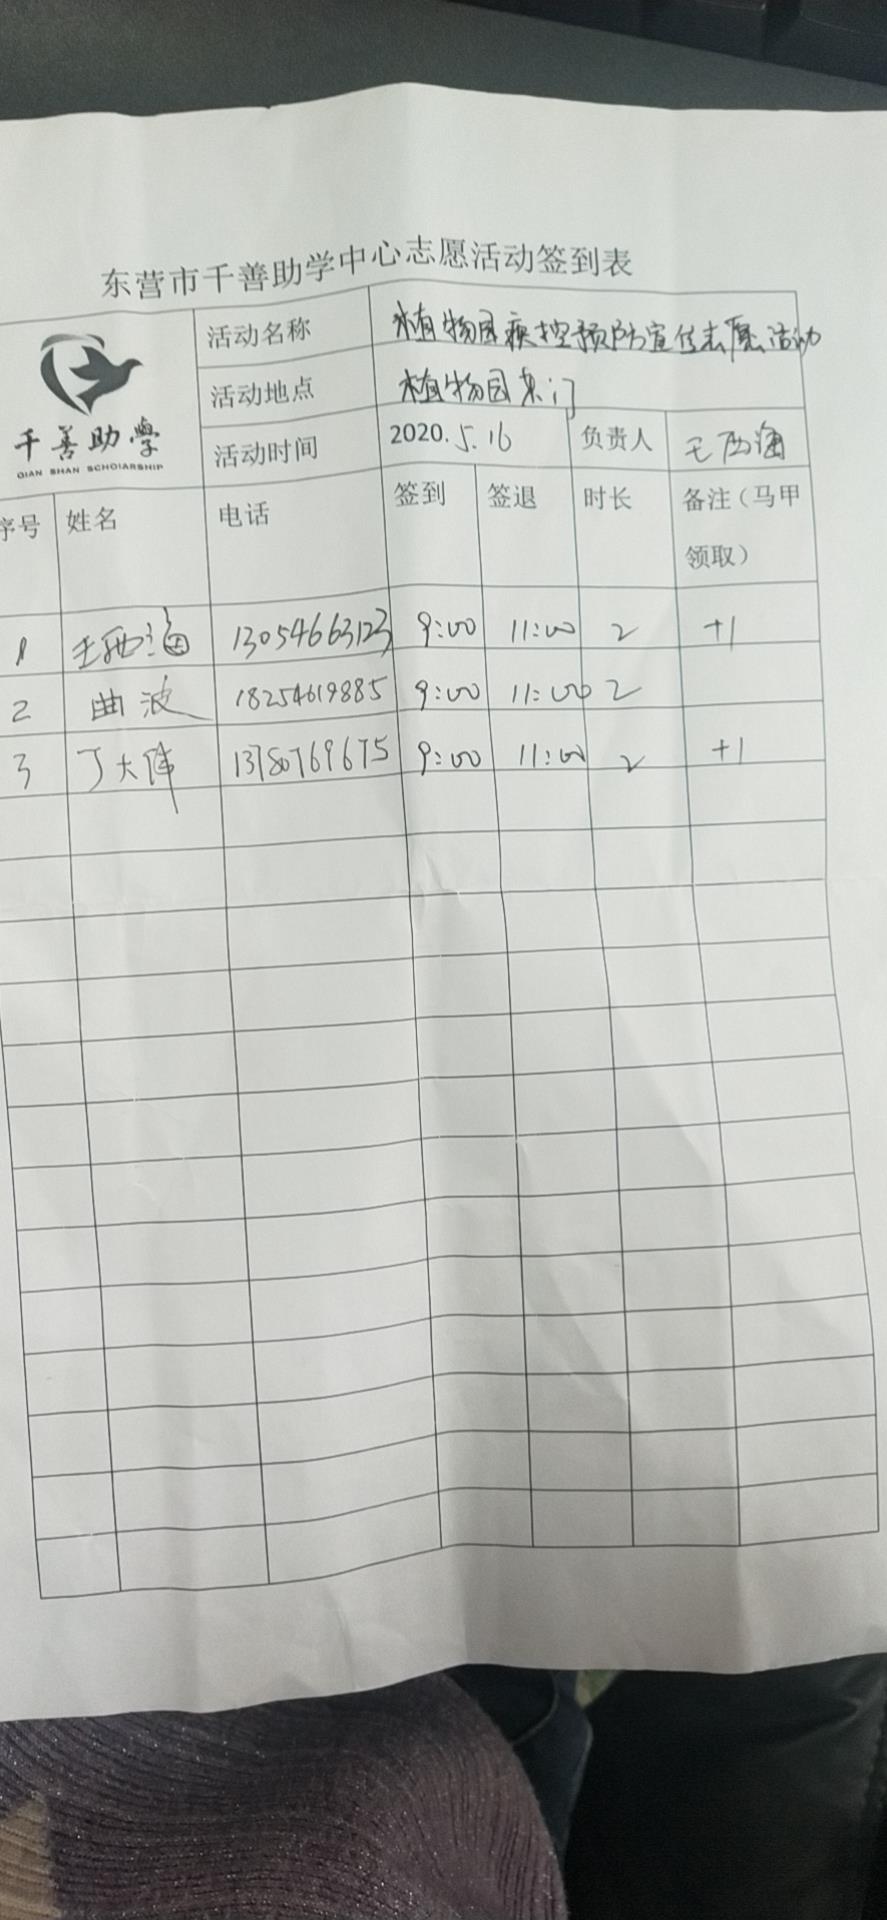 东营市千善助学中心志愿活动签到表
千善助學
QIAN SHAN SCHOIARSHIP
活动名称 植物园疾控预防宣传志愿活动
活动地点 植物园东门
活动时间 2020.5.16 负责人 王西海
序号 姓名 电话 签到 签退 时长 备注（马甲
领取）
1 王西海 13054663123 9:00 11:00 2 +1
2 曲波 18254619885 9:00 11:00 2
3 丁大伟 13780769675 9:00 11:00 2 +1